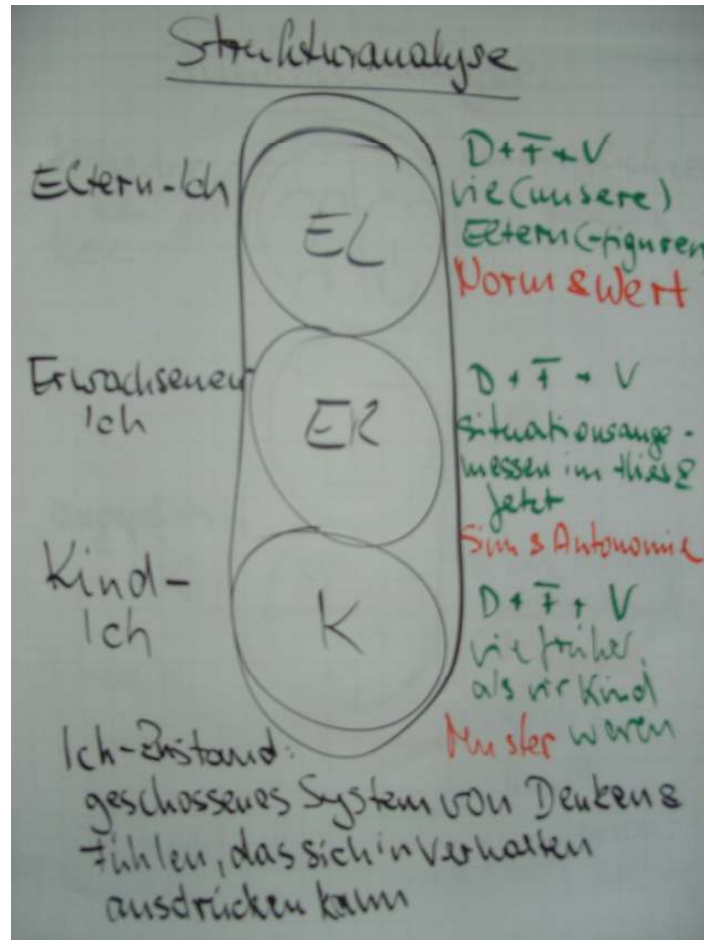 Strukturanalyse
Eltern-Ich
EL
D + F + V
wie (unsere)
Eltern(-figuren)
Norm & Wert
Erwachsenen
Ich
ER
D + F + V
situationsange-
messen im Hier &
Jetzt
Sinn & Autonomie
Kind-
Ich
K
D + F + V
wie früher,
als wir Kind
waren
Muster
Ich-Zustand:
geschossenes System von Denken &
Fühlen, das sich in Verhalten
ausdrücken kann